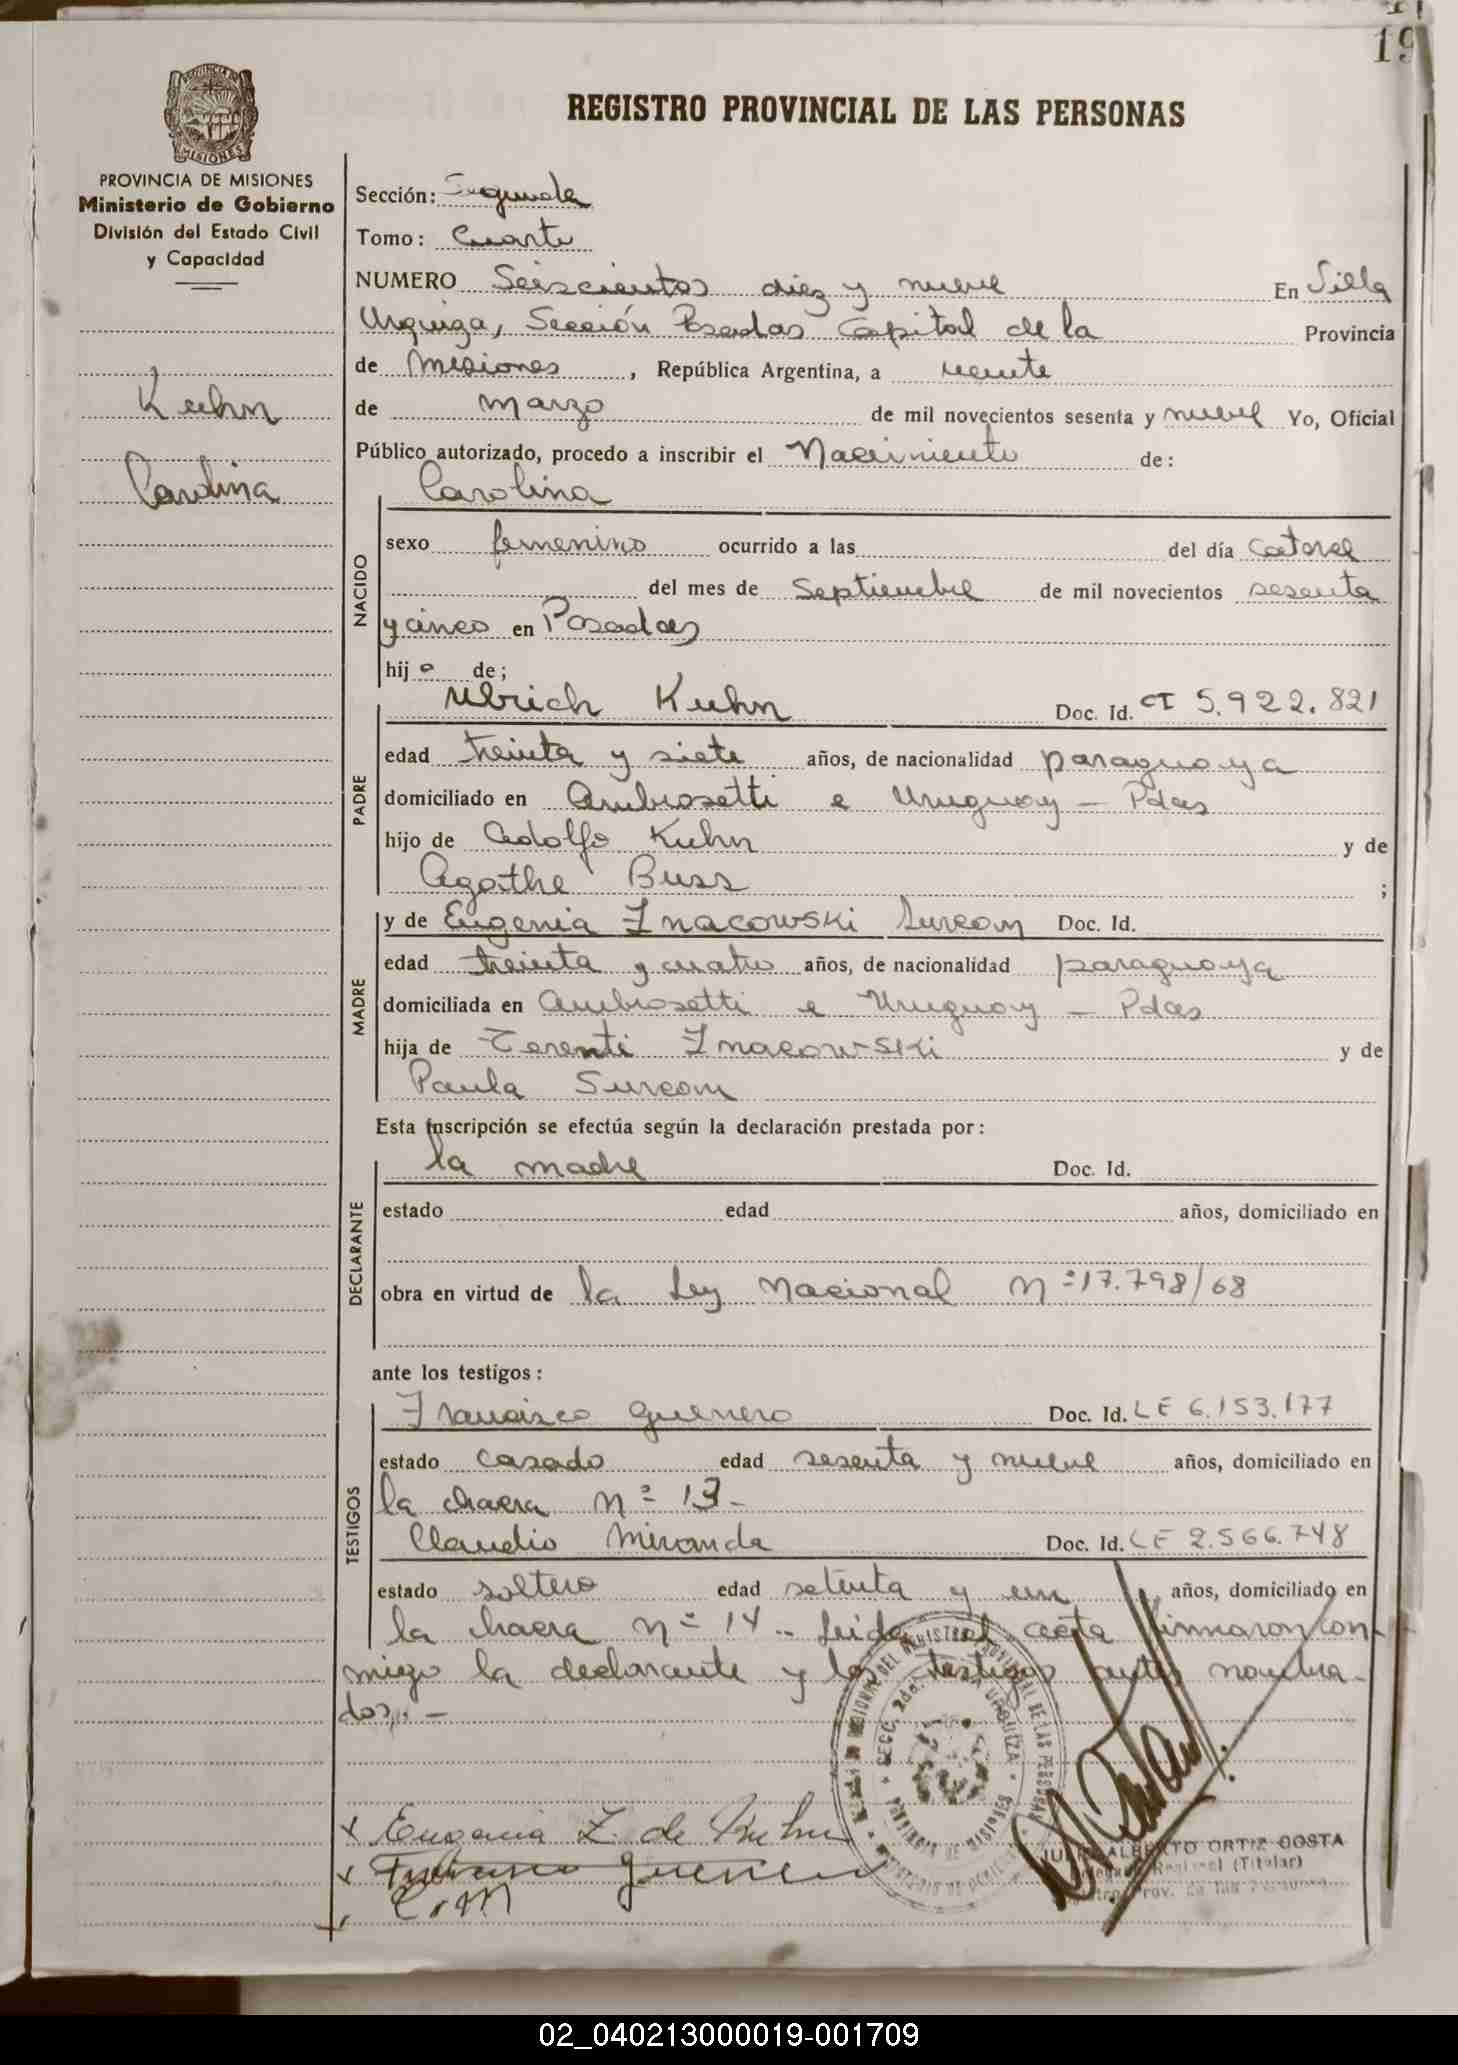 19
REGISTRO PROVINCIAL DE LAS PERSONAS
PROVINCIA DE MISIONES
Ministerio de Gobierno
División del Estado Civil
y Capacidad
Kuhn
Carolina
Sección: Segunda
Tomo: Cuarto
NUMERO Seiscientos diez y nueve En Villa
Urquiza, Sección Posadas Capital de la Provincia
de Misiones, República Argentina, a veinte
de marzo de mil novecientos sesenta y nueve Yo, Oficial
Público autorizado, procedo a inscribir el Nacimiento de:
Carolina
NACIDO
sexo femenino ocurrido a las del día catorce
del mes de Septiembre de mil novecientos sesenta
y cinco en Posadas
hija de;
Ulrich Kuhn Doc. Id. CI 5.922.821
PADRE
edad treinta y siete años, de nacionalidad paraguaya
domiciliado en Ambrosetti e Uruguay - Pdas
hijo de Adolfo Kuhn y de
Agathe Buss ;
y de Eugenia Znacowski Surcom Doc. Id.
MADRE
edad treinta y cuatro años, de nacionalidad paraguaya
domiciliada en Ambrosetti e Uruguay - Pdas
hija de Terenti Znacowski y de
Paula Surcom
Esta inscripción se efectúa según la declaración prestada por:
la madre Doc. Id.
DECLARANTE
estado edad años, domiciliado en
obra en virtud de la Ley Nacional Nº 17.798/68
ante los testigos:
Francisco Guerrero Doc. Id. LE 6.153.177
TESTIGOS
estado casado edad sesenta y nueve años, domiciliado en
la chacra Nº 13-
Claudio Miranda Doc. Id. LE 2.566.748
estado soltero edad setenta y un años, domiciliado en
la chacra Nº 14.- Leida el acta firmaron con-
migo la declarante y los testigos antes nombra-
dos.-
x Eugenia Z. de Kuhn
x Francisco Guerrero
C. M
SECC. 2da. URQUIZA
PROVINCIA DE MISIONES
ALBERTO ORTIZ COSTA
Delegado Regional (Titular)
Registro Prov. de las Personas
02_040213000019-001709